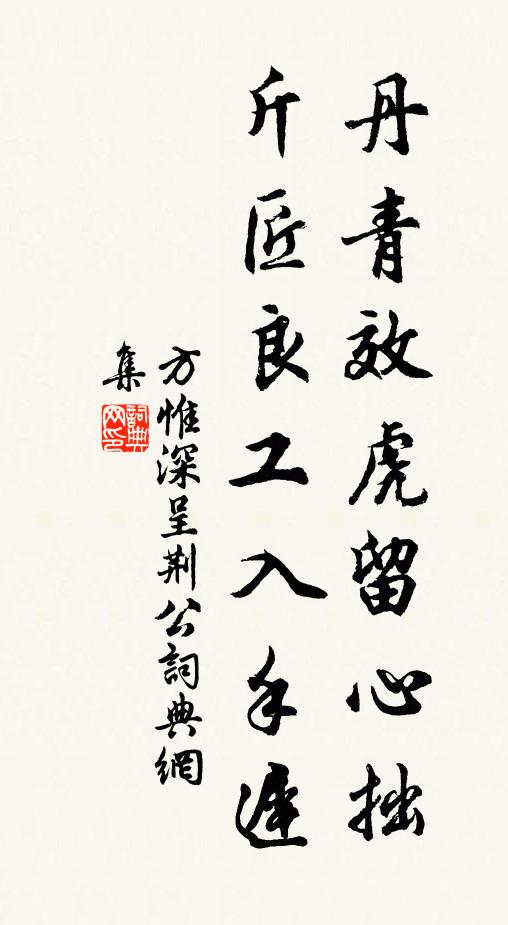 丹青效虎留心拙
斤匠良工入手遲
方惟深呈荆公詞典網
集
詞典网印